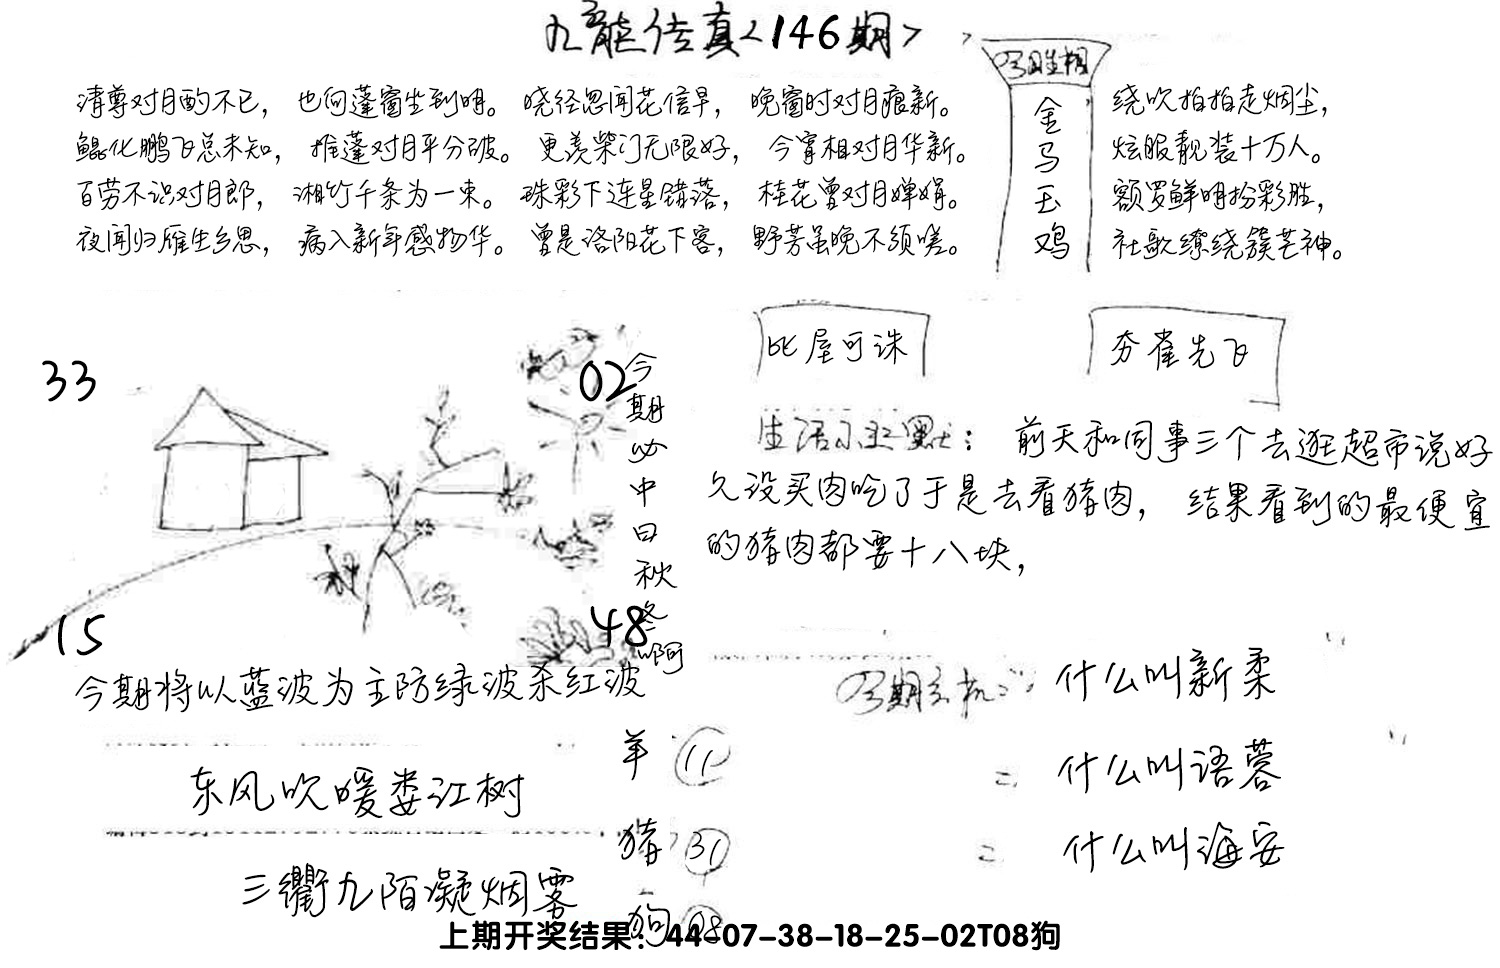 九龍传真<146期>
清尊对月酌不已，也向蓬窗坐到明。晓径忽闻花信早，晚窗时对月痕新。
鲲化鹏飞总未知，推蓬对月平分破。更羡柴门无限好，今宵相对月华新。
百劳不识对月郎，湘竹千条为一束。珠彩下连星错落，桂花曾对月婵娟。
夜闻归雁生乡思，病入新年感物华。曾是洛阳花下客，野芳虽晚不须嗟。
金
马
玉
鸡
绕吹拍拍走烟尘，
炫服靓装十万人。
额罗鲜明扮彩胜，
社歌缭绕簇芒神。
比屋可诛
夯雀先飞
33
02
15
48
今期必中曰秋冬啊
生活小幽默：前天和同事三个去逛超市说好
久没买肉吃了于是去看猪肉，结果看到的最便宜
的猪肉都要十八块，
今期将以蓝波为主防绿波杀红波
今期玄机：什么叫新柔
= 什么叫语蓉
= 什么叫海安
东风吹暖娄江树
三衢九陌凝烟雾
羊 11
猪 31
狗 08
上期开奖结果：44-07-38-18-25-02T08狗